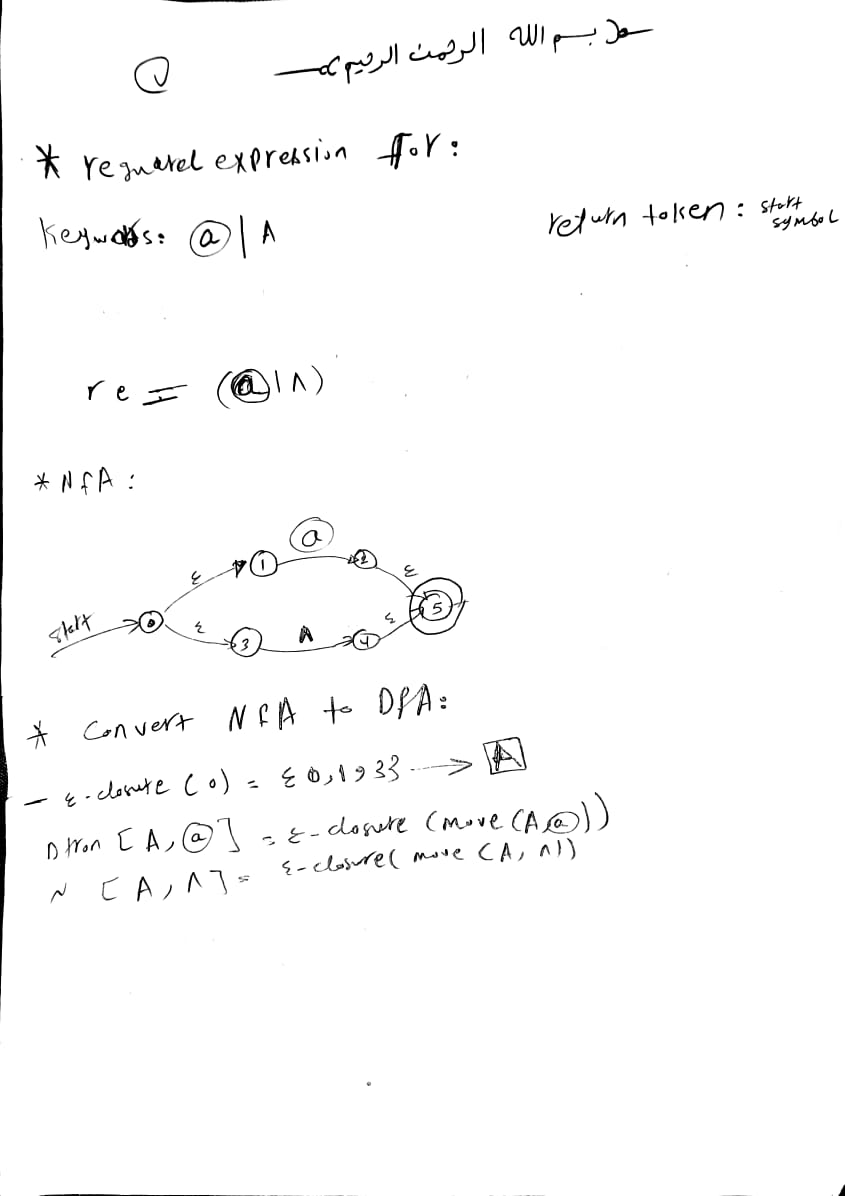 بسم الله الرحمن الرحيم
* reguarel expression for:
Keywords: @ | ^
return token: start symbol
re = (@|^)
* NFA:
@
ε 1 2 ε
start 0 5
ε 3 ^ 4 ε
* Convert NFA to DFA:
- ε-closure (0) = {0,1,3} → A
Dtran [A,@] = ε-closure (move (A,@))
~ [A,^] = ε-closure( move (A,^))